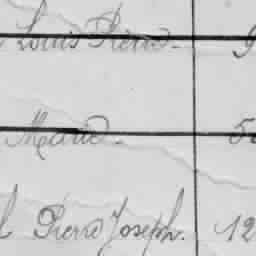 Louis Pierre - 9
Marie - 5
Pierre Joseph. 12